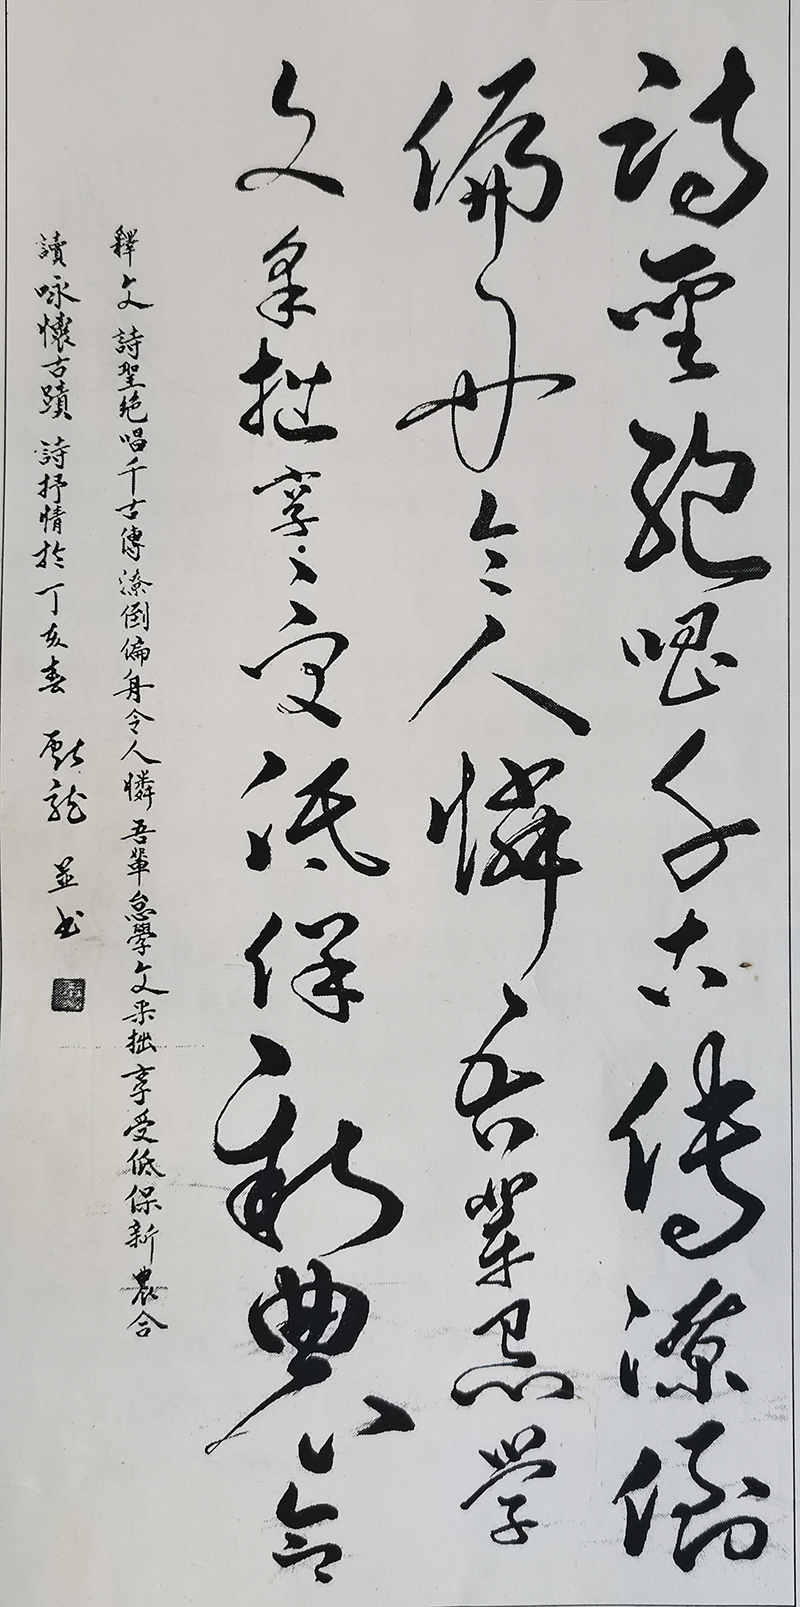 詩聖絶唱千古傳潦倒
偏身令人憐吾輩怠學
文采拙享受低保新農合
釋文 詩聖绝唱千古傳潦倒偏身令人憐吾輩怠學文采拙享受低保新農合
讀咏懷古蹟詩抒情於丁亥春 龍並书